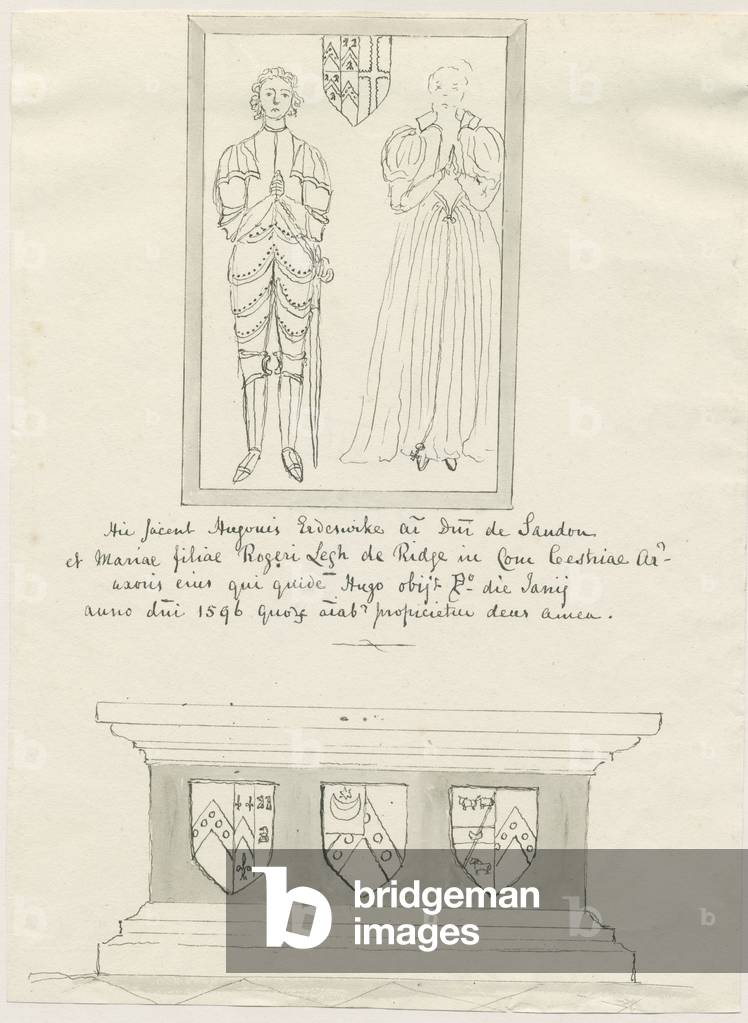 Hic jacent Hugonis Erdeswike ar̄ Dm̄ de Sandon
et Mariae filiae Rogeri Legh de Ridge in Com Cestriae Arʳ
uxoris eius qui quidē Hugo obijt die Janij
anno dm̄i 1596 quorꝝ āīabʳ propicietur deus amen.
b bridgeman
images